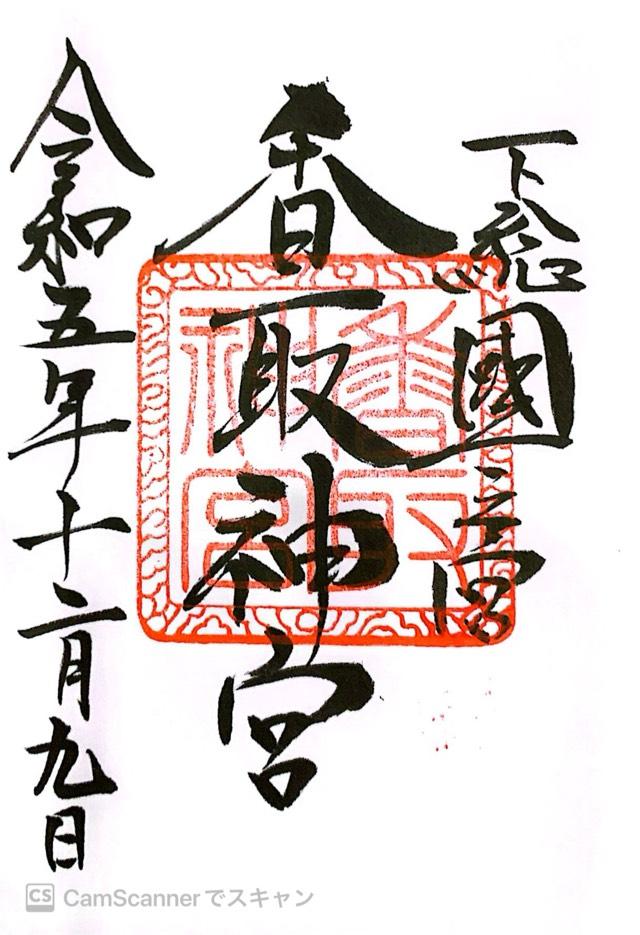 下総國一之宮
香取神宮
香取神宮
令和五年十二月九日
CS CamScannerでスキャン